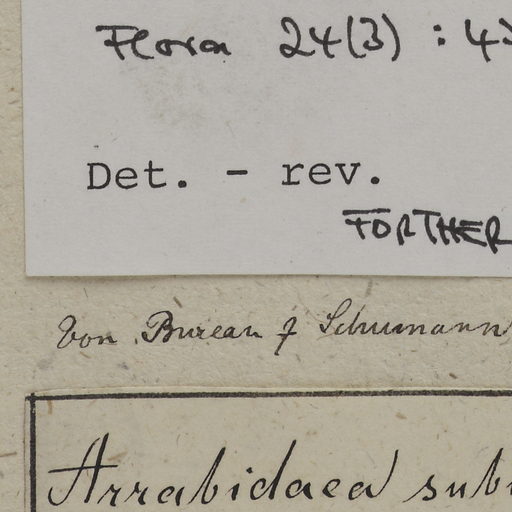 Flora 24(3) : 4
Det. - rev.
FÖRTHER
Von Bureau & Schumann
Arrabidaea sub